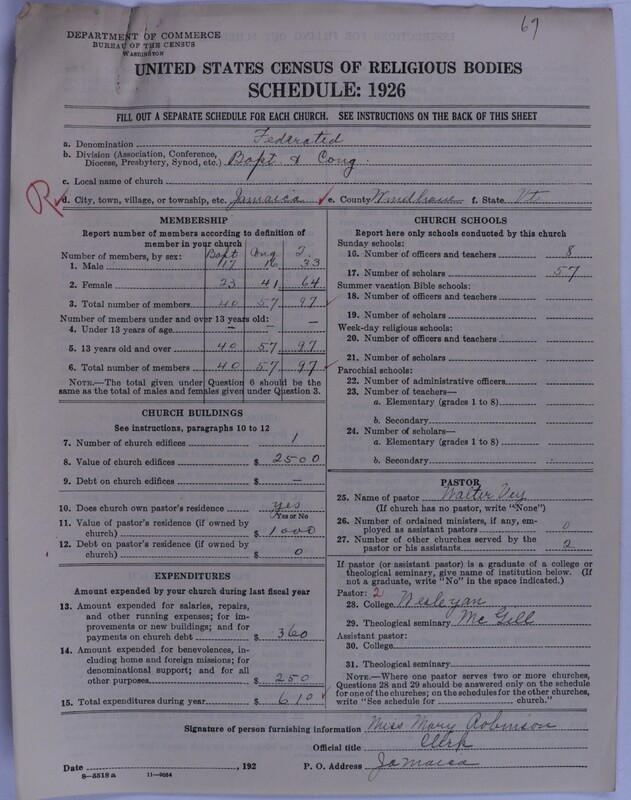 69
DEPARTMENT OF COMMERCE
BUREAU OF THE CENSUS
WASHINGTON
UNITED STATES CENSUS OF RELIGIOUS BODIES
SCHEDULE: 1926
FILL OUT A SEPARATE SCHEDULE FOR EACH CHURCH. SEE INSTRUCTIONS ON THE BACK OF THIS SHEET
a. Denomination Federated
b. Division (Association, Conference, Diocese, Presbytery, Synod, etc.) Bapt & Cong.
c. Local name of church
R d. City, town, village, or township, etc. Jamaica e. County Windham f. State Vt.
MEMBERSHIP
Report number of members according to definition of
member in your church
Number of members, by sex: Bapt Cong T.
1. Male 17 16 33
2. Female 23 41 64
3. Total number of members 40 57 97
Number of members under and over 13 years old:
4. Under 13 years of age — — —
5. 13 years old and over 40 57 97
6. Total number of members 40 57 97
NOTE.—The total given under Question 6 should be
same as the total of males and females given under Question 3.
CHURCH BUILDINGS
See instructions, paragraphs 10 to 12
7. Number of church edifices 1
8. Value of church edifices $ 2500
9. Debt on church edifices $ —
10. Does church own pastor's residence yes
Yes or No
11. Value of pastor's residence (if owned by
church) $ 1000
12. Debt on pastor's residence (if owned by
church) $ 0
EXPENDITURES
Amount expended by your church during last fiscal year
13. Amount expended for salaries, repairs,
and other running expenses; for im-
provements or new buildings; and for
payments on church debt $ 360
14. Amount expended for benevolences, in-
cluding home and foreign missions; for
denominational support; and for all
other purposes $ 250
15. Total expenditures during year $ 610
CHURCH SCHOOLS
Report here only schools conducted by this church
Sunday schools:
16. Number of officers and teachers 8
17. Number of scholars 57
Summer vacation Bible schools:
18. Number of officers and teachers
19. Number of scholars
Week-day religious schools:
20. Number of officers and teachers
21. Number of scholars
Parochial schools:
22. Number of administrative officers
23. Number of teachers—
a. Elementary (grades 1 to 8)
b. Secondary
24. Number of scholars—
a. Elementary (grades 1 to 8)
b. Secondary
PASTOR
25. Name of pastor Walter Vey
(If church has no pastor, write "None")
26. Number of ordained ministers, if any, em-
ployed as assistant pastors 0
27. Number of other churches served by the
pastor or his assistants 2
If pastor (or assistant pastor) is a graduate of a college or
theological seminary, give name of institution below. (If
not a graduate, write "No" in the space indicated.)
Pastor: 2
28. College Wesleyan
29. Theological seminary Mc Gill
Assistant pastor:
30. College
31. Theological seminary
NOTE.—Where one pastor serves two or more churches,
Questions 28 and 29 should be answered only on the schedule
for one of the churches; on the schedules for the other churches,
write "See schedule for church."
Signature of person furnishing information Miss Mary Robinson
Official title Clerk
Date , 192 P. O. Address Jamaica
8—5518 a 11—9064